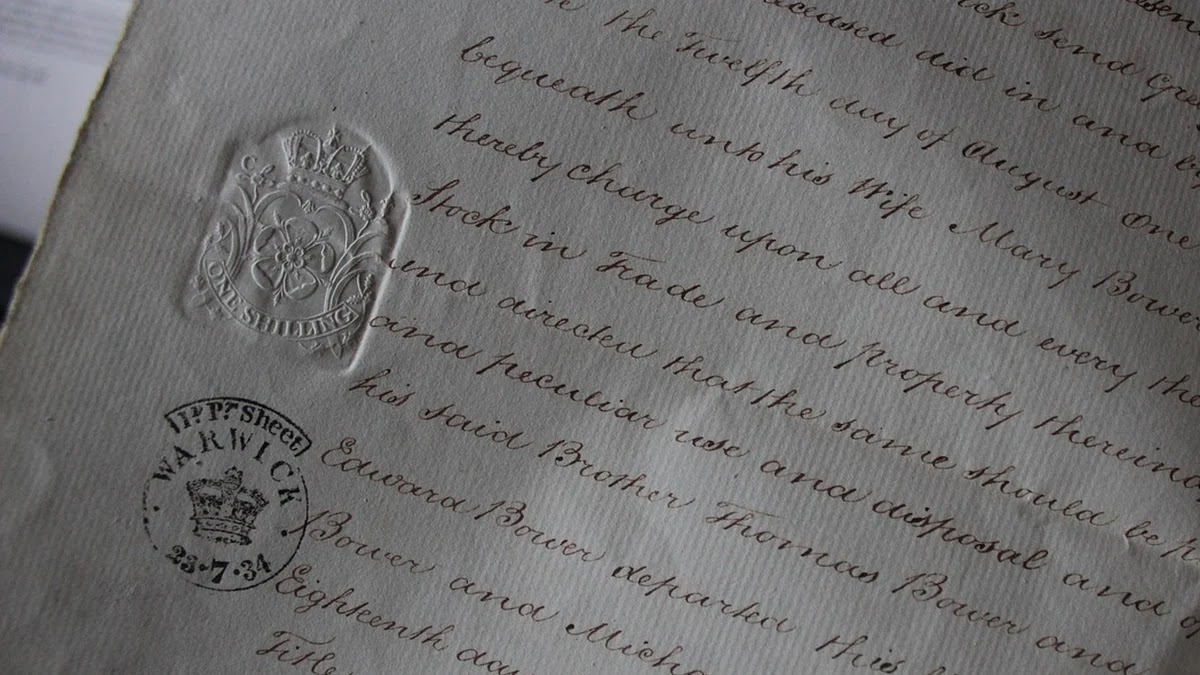 deceased did in and
the Twelfth day of August One
bequeath unto his Wife Mary Bower
thereby charge upon all and every the
Stock in Trade and property therein
and directed that the same should be
and peculiar use and disposal and
his said Brother Thomas Bower and
Edward Bower departed this
Bower and
Eighteenth day
Title
ONE SHILLING
Pr. Sheet
WARWICK
23·7·34